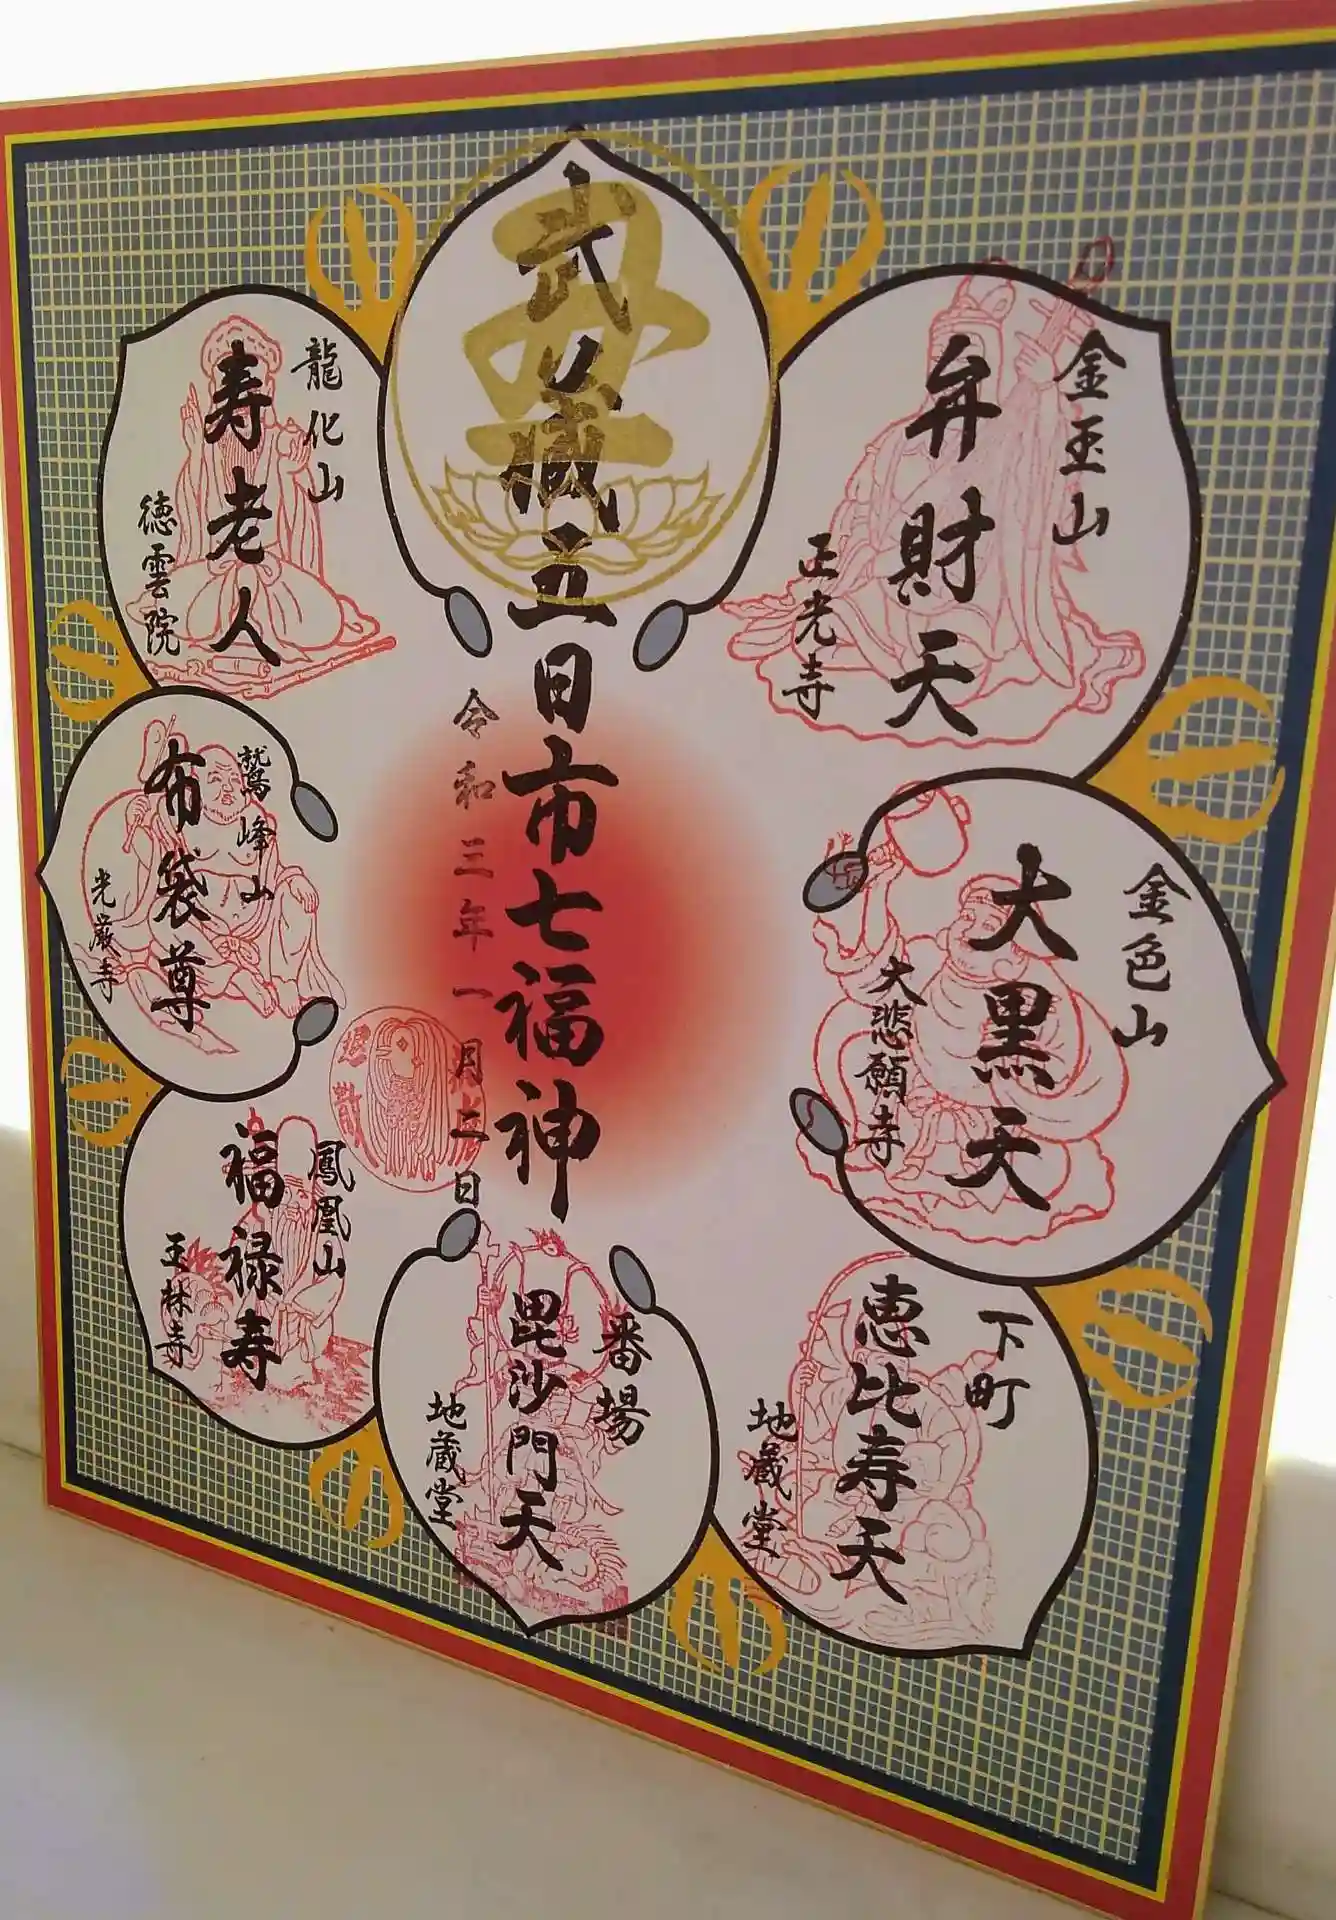 武蔵五日市七福神
令和三年一月二日
金玉山
弁財天
正光寺
金色山
大黒天
大悲願寺
下町
恵比寿天
地蔵堂
番場
毘沙門天
地蔵堂
鳳凰山
福禄寿
玉林寺
鷲峰山
布袋尊
光厳寺
龍化山
寿老人
徳雲院
丑
退散